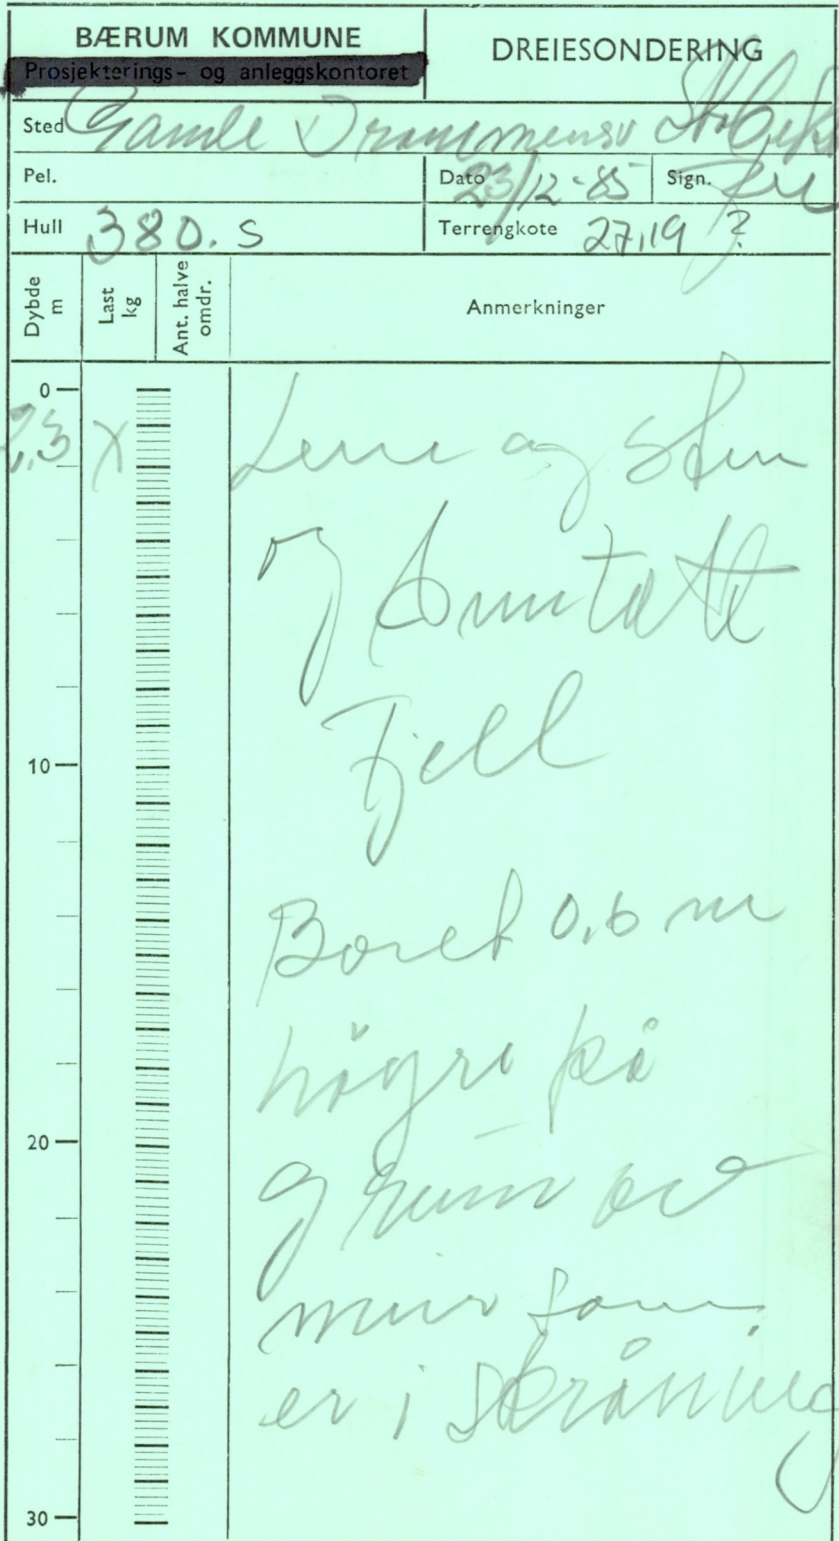 BÆRUM KOMMUNE
Prosjekterings- og anleggskontoret
DREIESONDERING
Sted Gamle Drammensv Stabekk
Pel.
Dato 23/12-85
Sign.
Hull 380.S
Terrengkote 27,19 ?
Dybde m
Last kg
Ant. halve omdr.
Anmerkninger
0
x
Leire og sten
og antatt
Fjell
10
Boret 0,6 m
högre på
grunn av
mur som
20
er i skråning
30